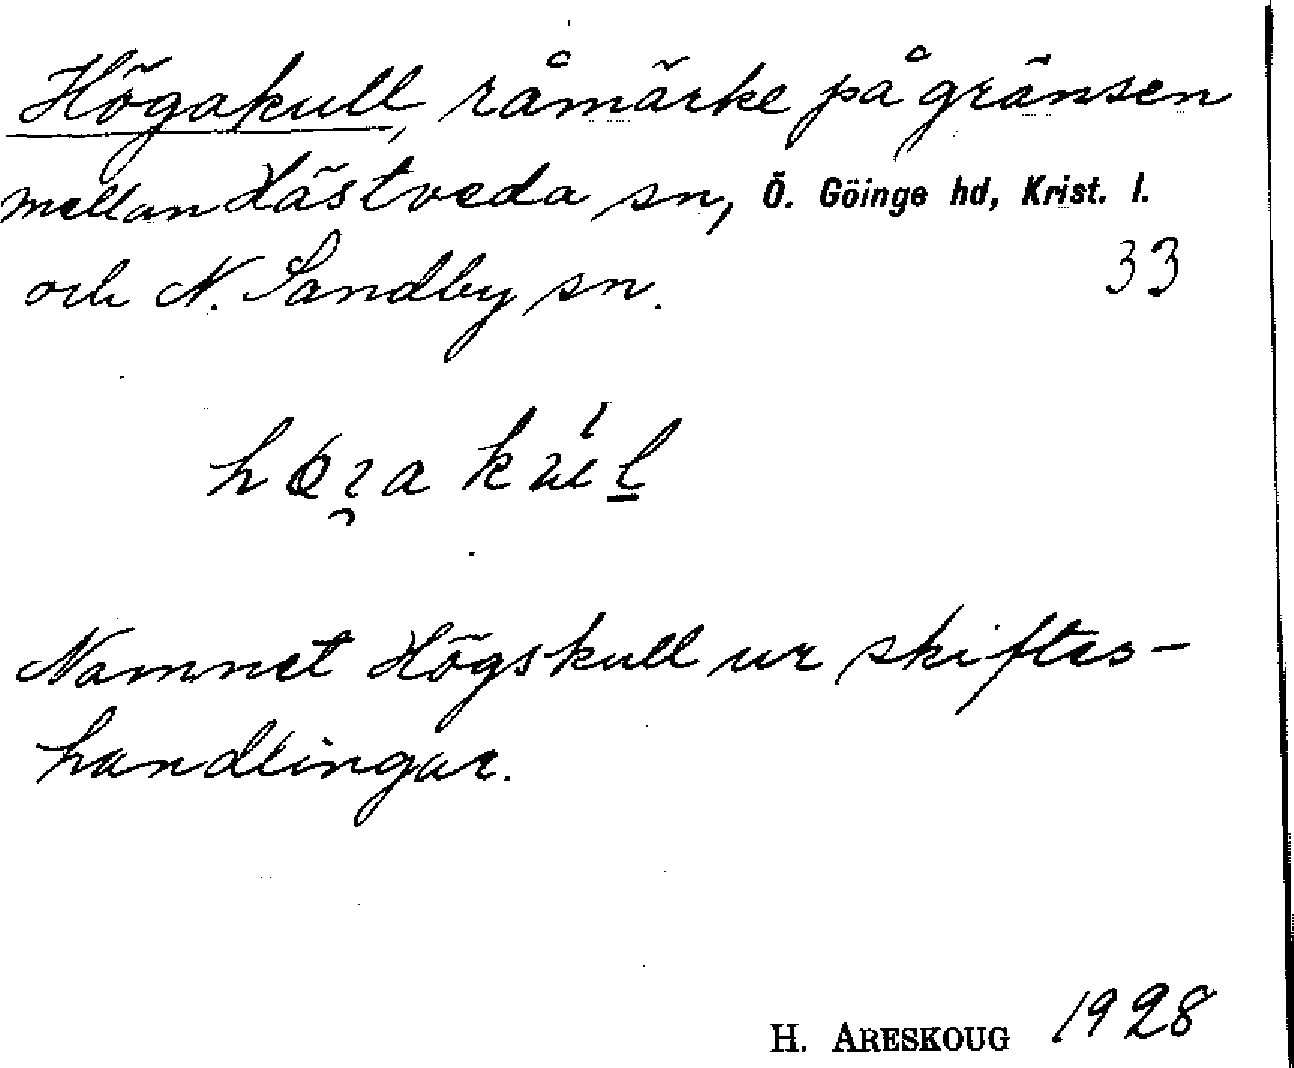 Högakull, råmärke på gränsen
mellan Hästveda sn, Ö. Göinge hd, Krist. l.
och N. Sandby sn. 33
Namnet Högskull ur skiftes-
handlingar.
H. ARESKOUG 1928